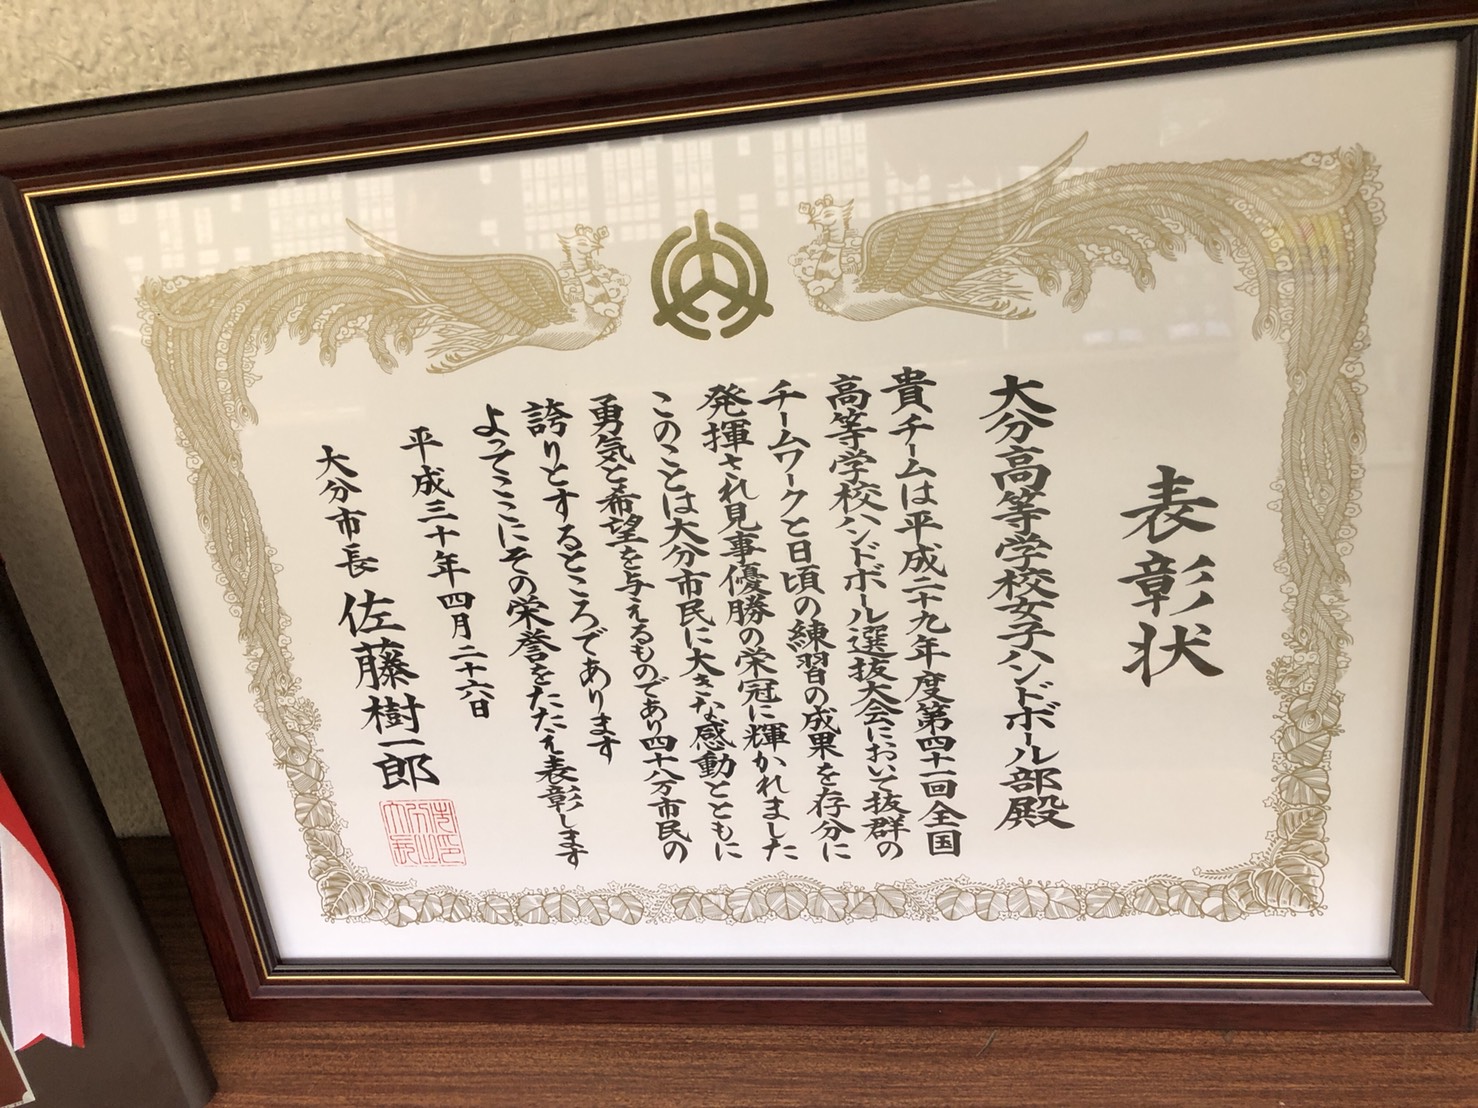 表彰状
大分高等学校女子ハンドボール部殿
貴チームは平成二十九年度第四十一回全国
高等学校ハンドボール選抜大会において抜群の
チームワークと日頃の練習の成果を存分に
発揮され見事優勝の栄冠に輝かれました
このことは大分市民に大きな感動とともに
勇気と希望を与えるものであり四十八万市民の
誇りとするところであります
よってここにその栄誉をたたえ表彰します
平成三十年四月二十六日
大分市長 佐藤樹一郎